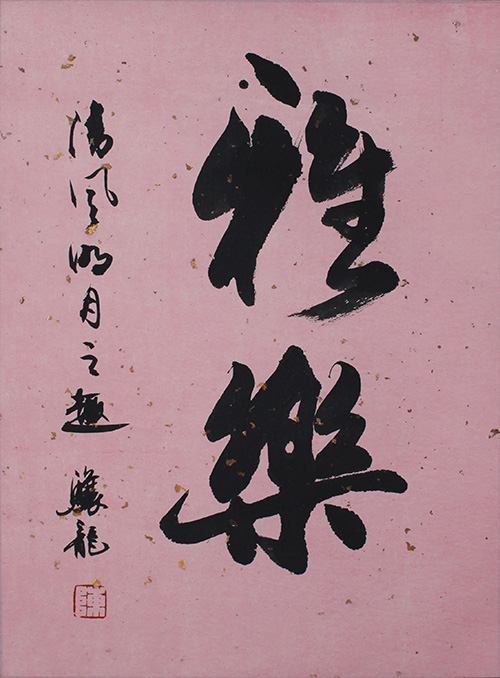 雅樂
清風明月之趣 龍
陳